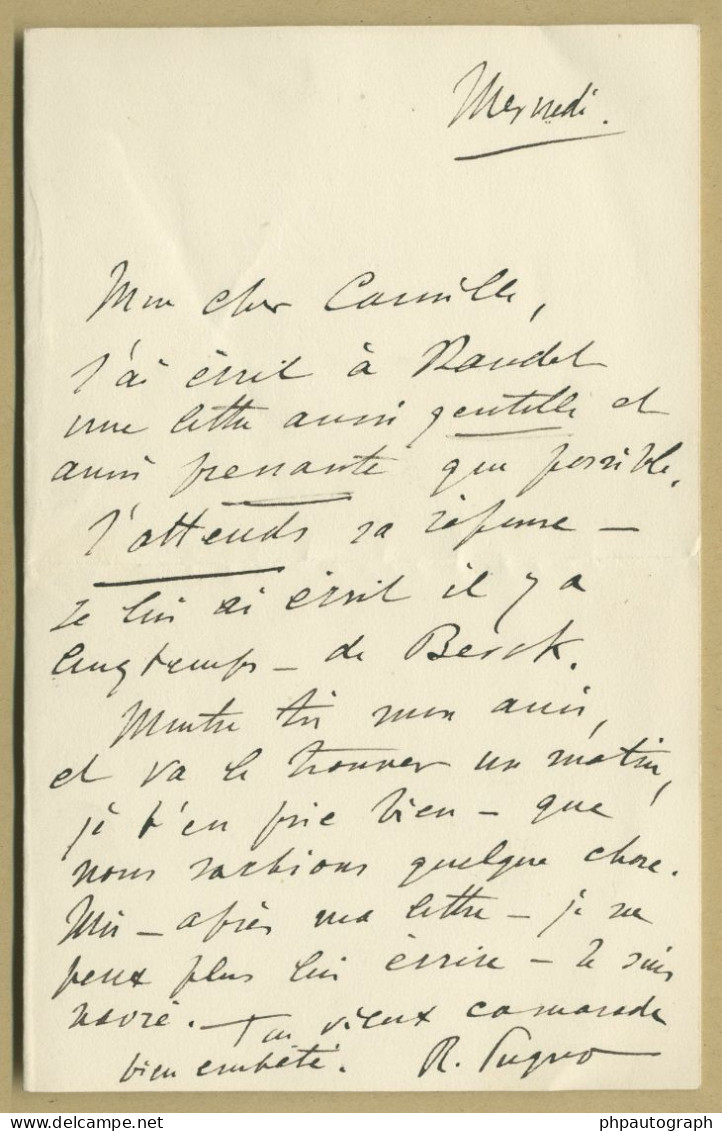 Mercredi.
Mon cher Camille,
J'ai écrit à
une lettre aussi gentille et
aussi pressante que possible.
J'attends sa réponse —
Je lui ai écrit il y a
longtemps — de Berck.
Montre toi mon ami,
et va le trouver un matin,
je t'en prie bien — que
nous sachions quelque chose.
Moi — après ma lettre — je ne
peux plus lui écrire — Je suis
navré. — Ton vieux camarade
bien embêté. R. Pugno
phpautograph